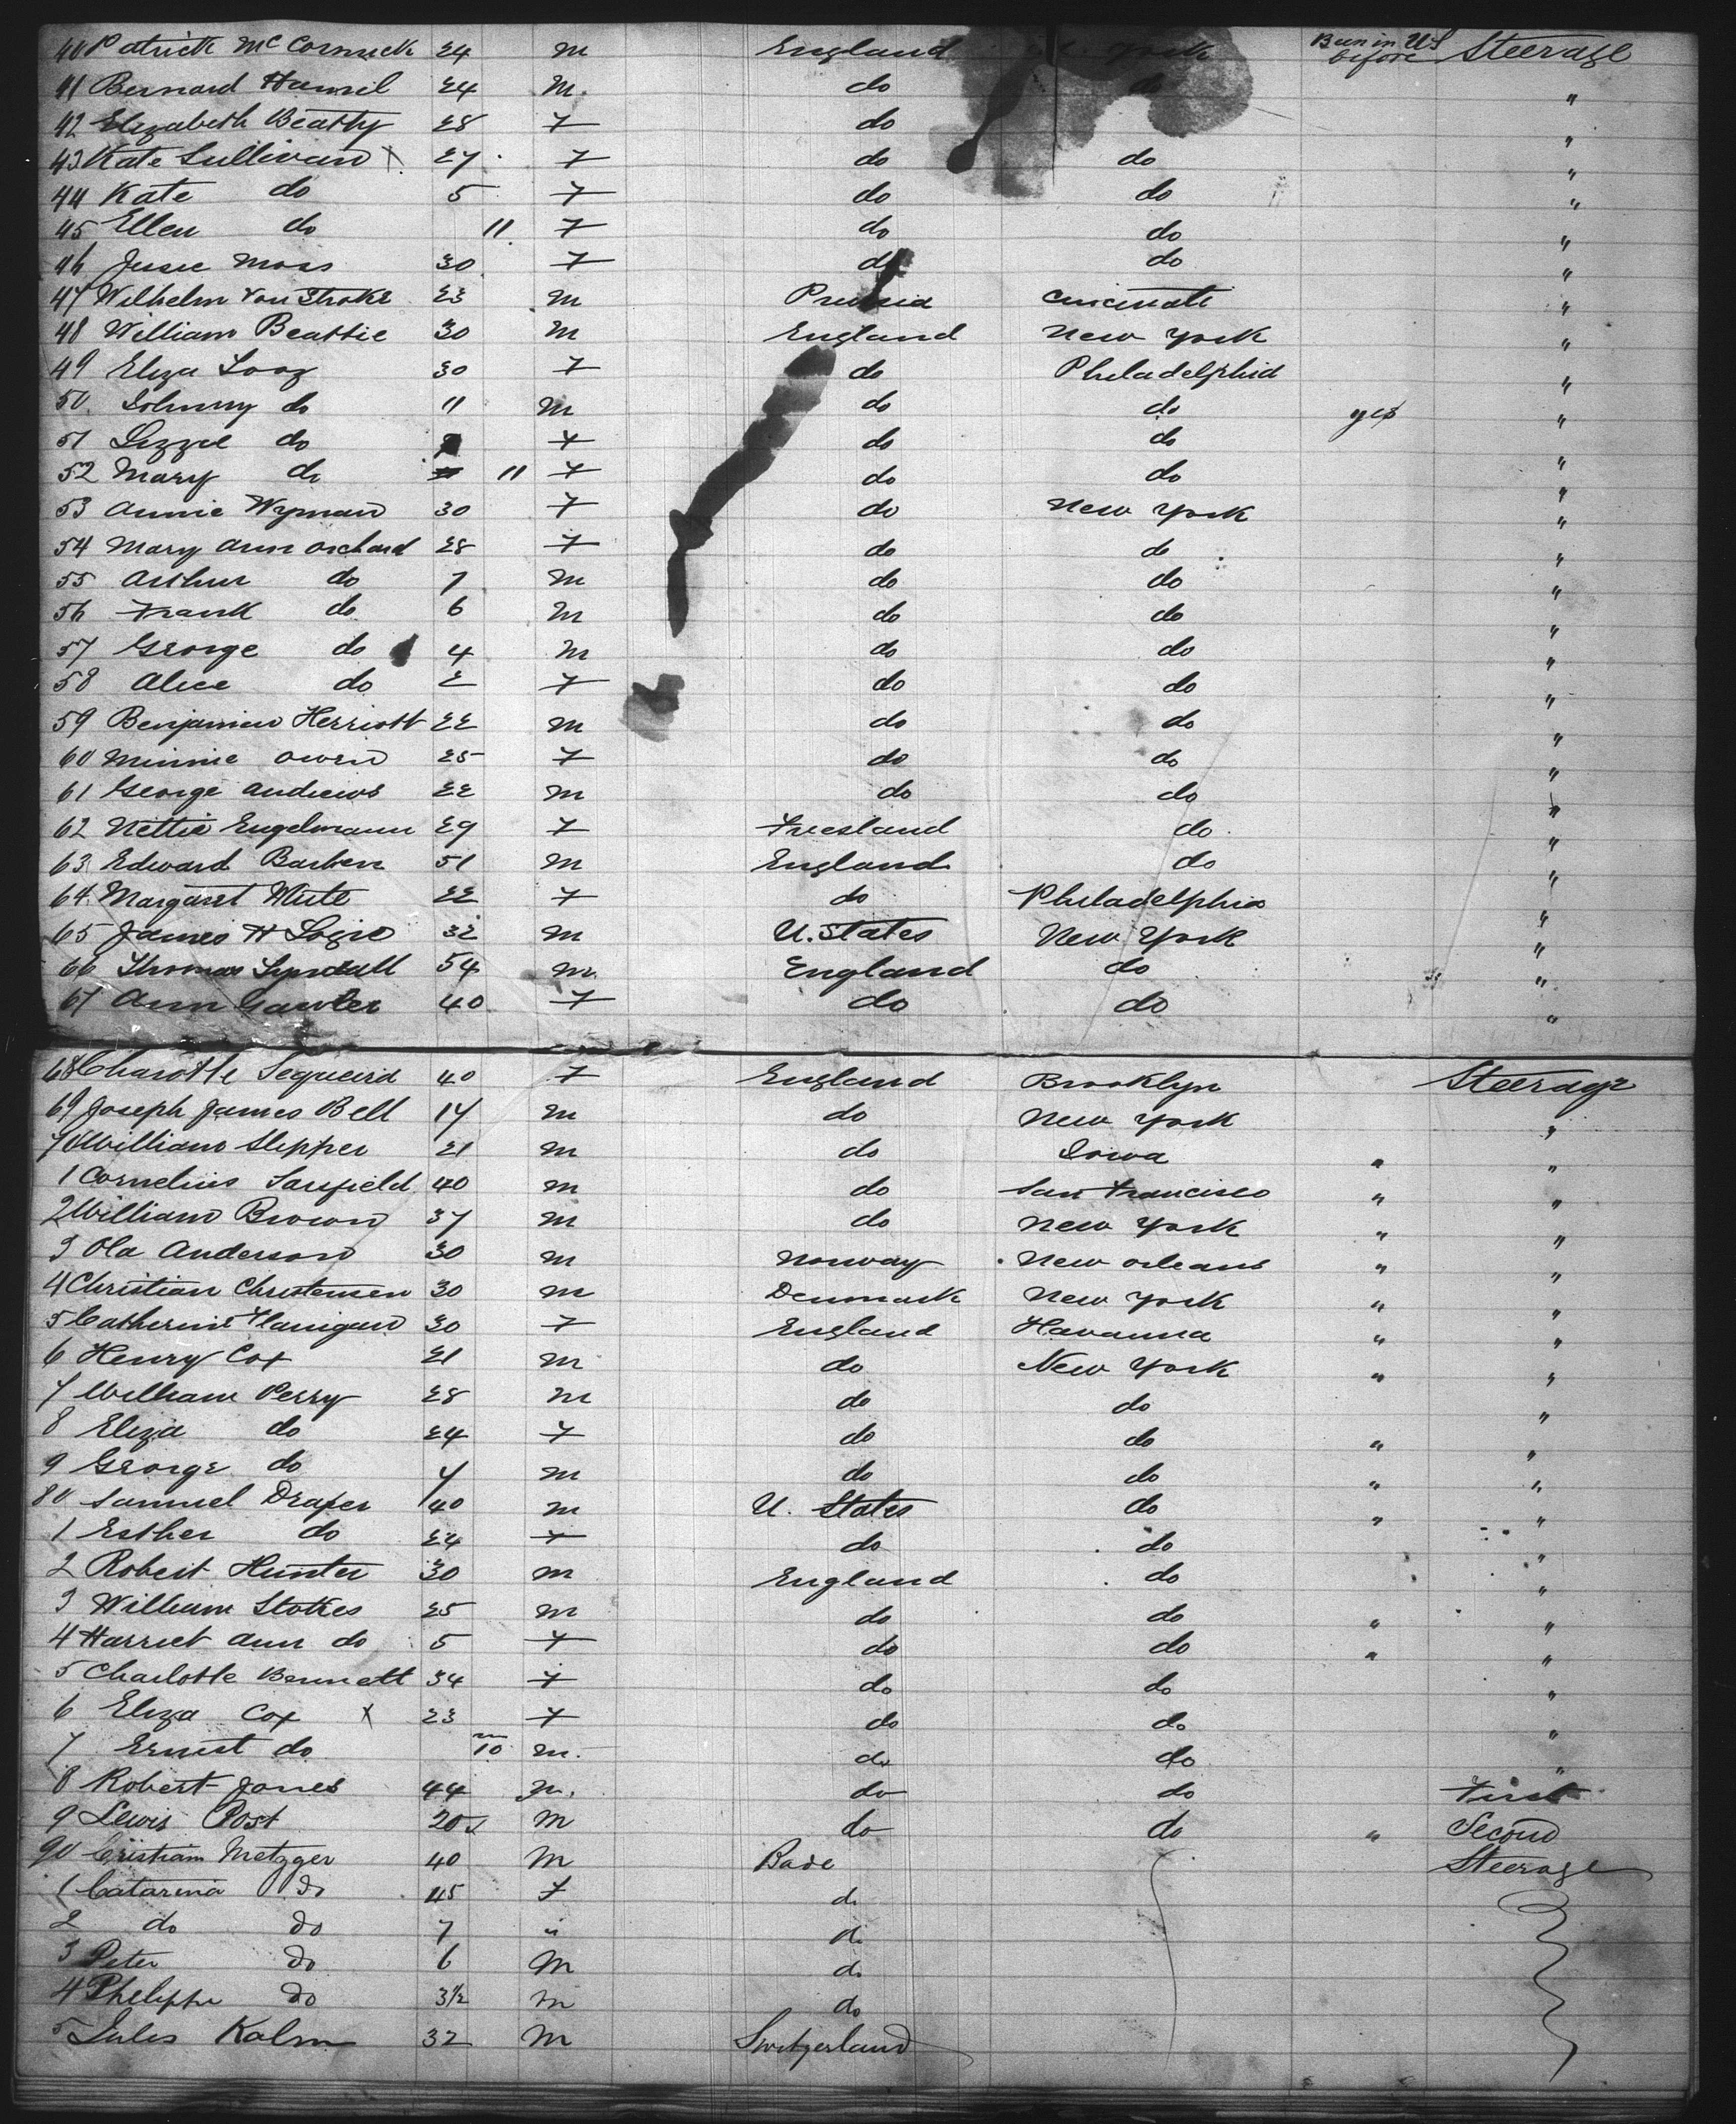 40 Patrick McCormick 24 m England N. York Been in US before Steerage
41 Bernard Hamil 24 m. do do "
42 Elizabeth Beatty 28 F do "
43 Kate Sullivan X 27 F do do "
44 Kate do 5 F do do "
45 Ellen do 11 F do do "
46 Jesse Moss 30 F do do "
47 Wilhelm Von 23 m Prussia Cincinati "
48 William Beattie 30 m England New York "
49 Eliza Looz 30 F do Philadelphia "
50 Johnny do 11 m do do yes "
51 Lizzie do F do do "
52 Mary do 11 F do do "
53 Annie Wyman 30 F do New York "
54 Mary Ann Orchard 28 F do do "
55 Arthur do 7 m do do "
56 Frank do 6 m do do "
57 George do 4 m do do "
58 Alice do 2 F do do "
59 Benjamin Herriott 22 m do do "
60 Minnie Owen 25 F do do "
61 George Andrews 22 m do do "
62 Nettie Engelmann 29 F Friesland do "
63 Edward Barben 51 m England do "
64 Margaret White 22 F do Philadelphia "
65 James H Logie 32 m U. States New York "
66 Thomas 54 m England do "
67 Ann Gawler 40 F do do "
68 Charotte Sequeird 40 F England Brooklyn Steerage
69 Joseph James Bell 14 m do New York "
70 William Slepper 21 m do Iowa " "
1 Cornelius Sarsfield 40 m do San Francisco " "
2 William Brown 37 m do New York " "
3 Ola Anderson 30 m Norway New Orleans " "
4 Christian Christensen 30 m Denmark New York " "
5 Catherine Flanigan 30 F England Havanna " "
6 Henry Cox 21 m do New York " "
7 William Perry 28 m do do "
8 Eliza do 24 F do do " "
9 George do 4 m do do " "
80 Samuel Draper 40 m U. States do " "
1 Esther do 24 F do do "
2 Robert Hunter 30 m England do "
3 William Stokes 25 m do do " "
4 Harriet Ann do 5 F do do " "
5 Charlotte Bennett 34 F do do "
6 Eliza Cox X 23 F do do "
7 Ernest do 10 m. do do "
8 Robert Jones 44 m. do do First
9 Lewis Post 20 m do do " Second
90 Cristiam Metzger 40 m Bade Steerage
1 Catarina do 45 F do
2 do do 7 " do
3 Peter do 6 m do
4 Pheliphe do 3½ m do
5 Jules Kalm 32 m Switzerland